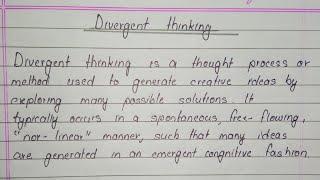 Divergent thinking
Divergent thinking is a thought process or
method used to generate creative ideas by
exploring many possible solutions. It
typically occurs in a spontaneous, free-flowing,
"non-linear" manner, such that many ideas
are generated in an emergent congnitive fashion.